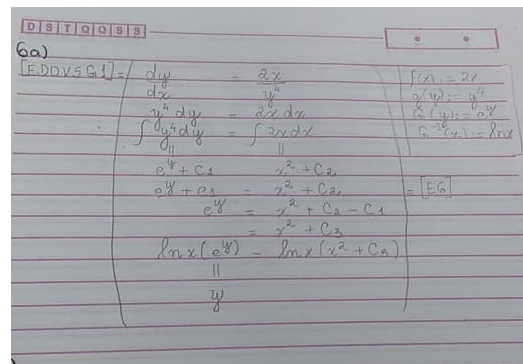 D S T Q Q S S
6a)
[E.D.O.V.S.G1] = dy/dx = 2x/y⁴
y⁴ dy = 2x dx
∫ y⁴ dy = ∫ 2x dx
|| ||
e^y + C1 x² + C2
e^y + C1 = x² + C2
e^y = x² + C2 - C1
= x² + C3
ln x (e^y) = ln x (x² + C3)
||
y
= [EG]
f(x) := 2x
g(y) := y⁴
G(y) := e^y
G⁻¹(x) := ln x